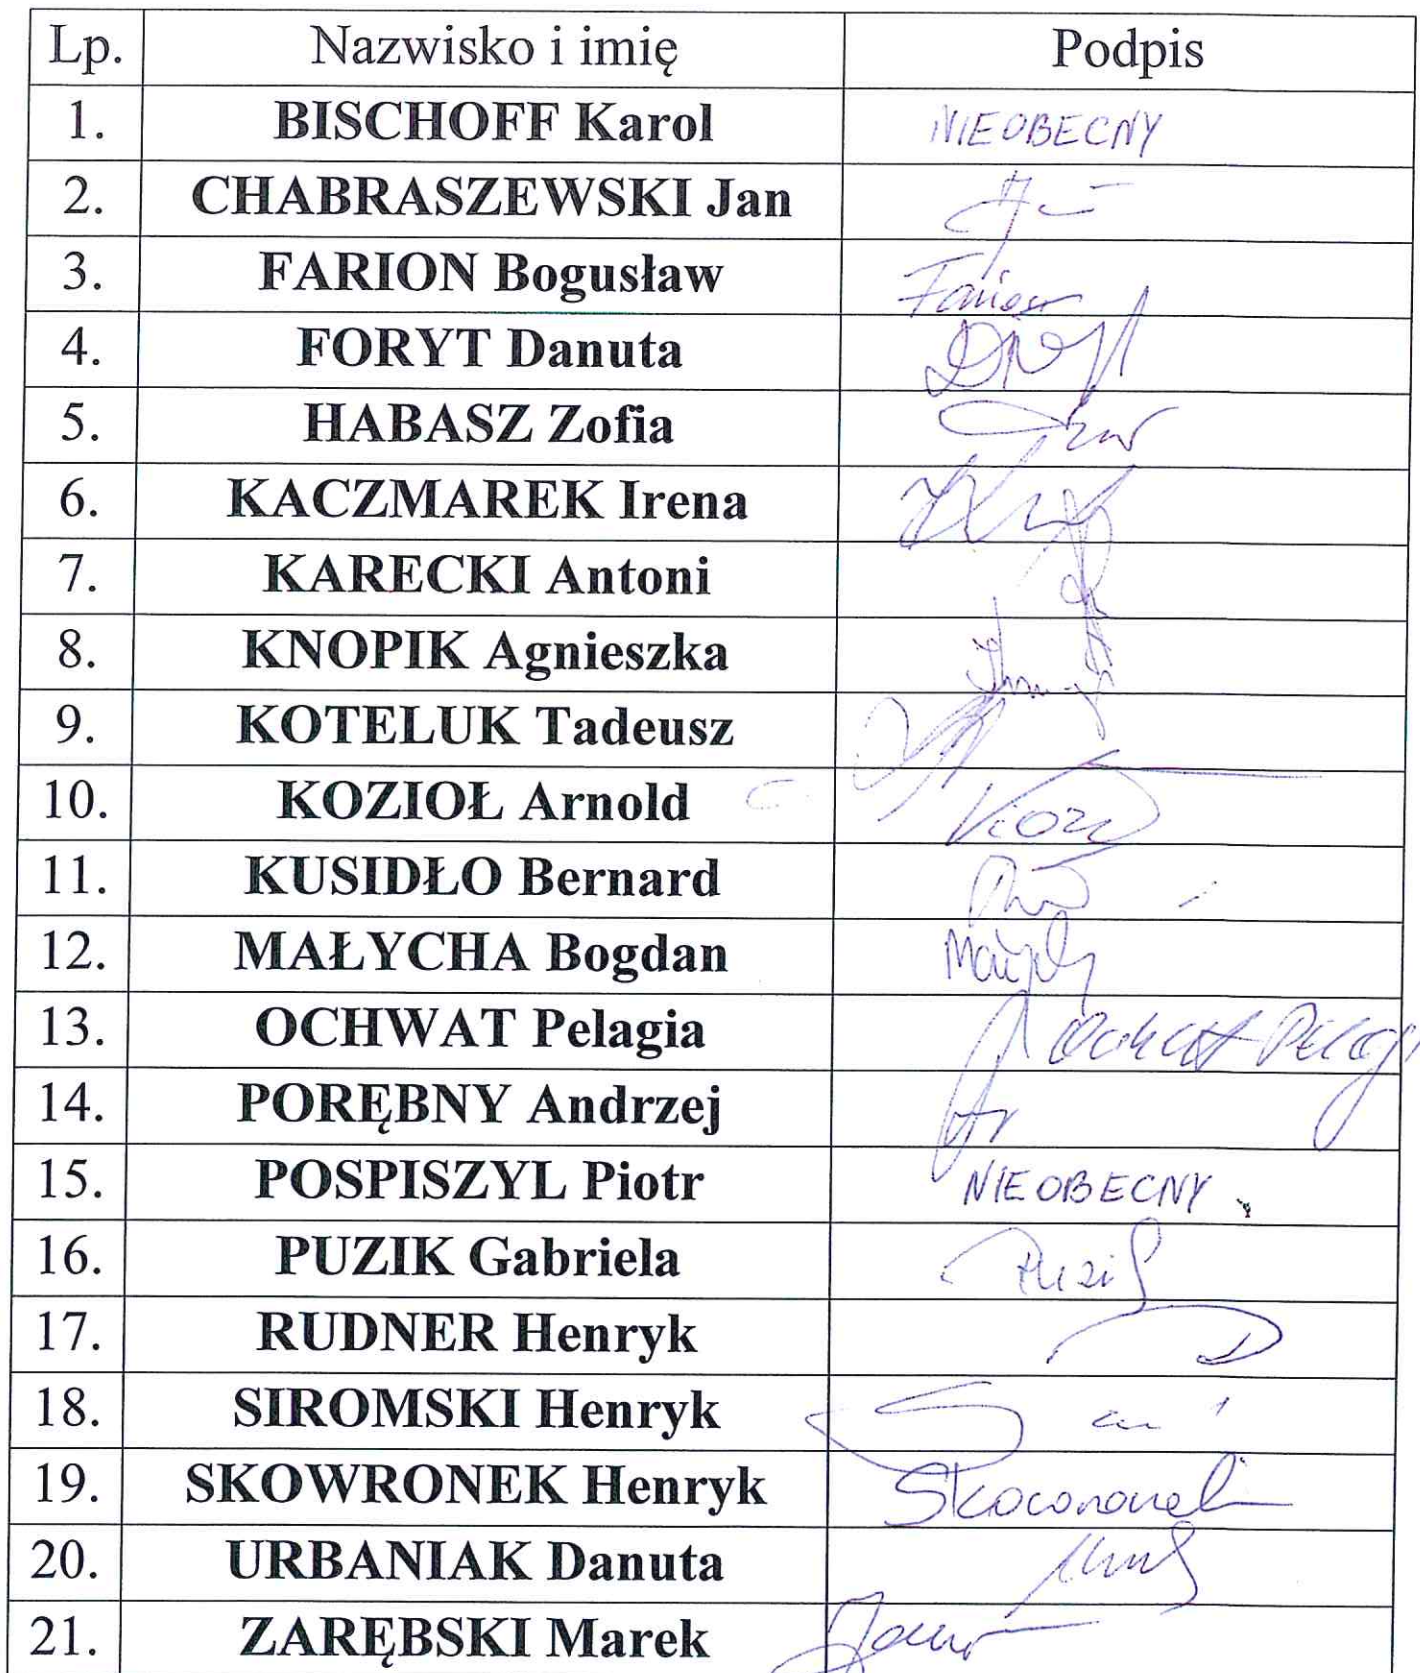 Lp. Nazwisko i imię Podpis
1. BISCHOFF Karol NIEOBECNY
2. CHABRASZEWSKI Jan
3. FARION Bogusław Farion
4. FORYT Danuta
5. HABASZ Zofia
6. KACZMAREK Irena
7. KARECKI Antoni
8. KNOPIK Agnieszka
9. KOTELUK Tadeusz
10. KOZIOŁ Arnold
11. KUSIDŁO Bernard
12. MAŁYCHA Bogdan
13. OCHWAT Pelagia Ochwat Pelagi
14. PORĘBNY Andrzej
15. POSPISZYL Piotr NIEOBECNY
16. PUZIK Gabriela Puzik
17. RUDNER Henryk
18. SIROMSKI Henryk
19. SKOWRONEK Henryk Skowronek
20. URBANIAK Danuta
21. ZARĘBSKI Marek